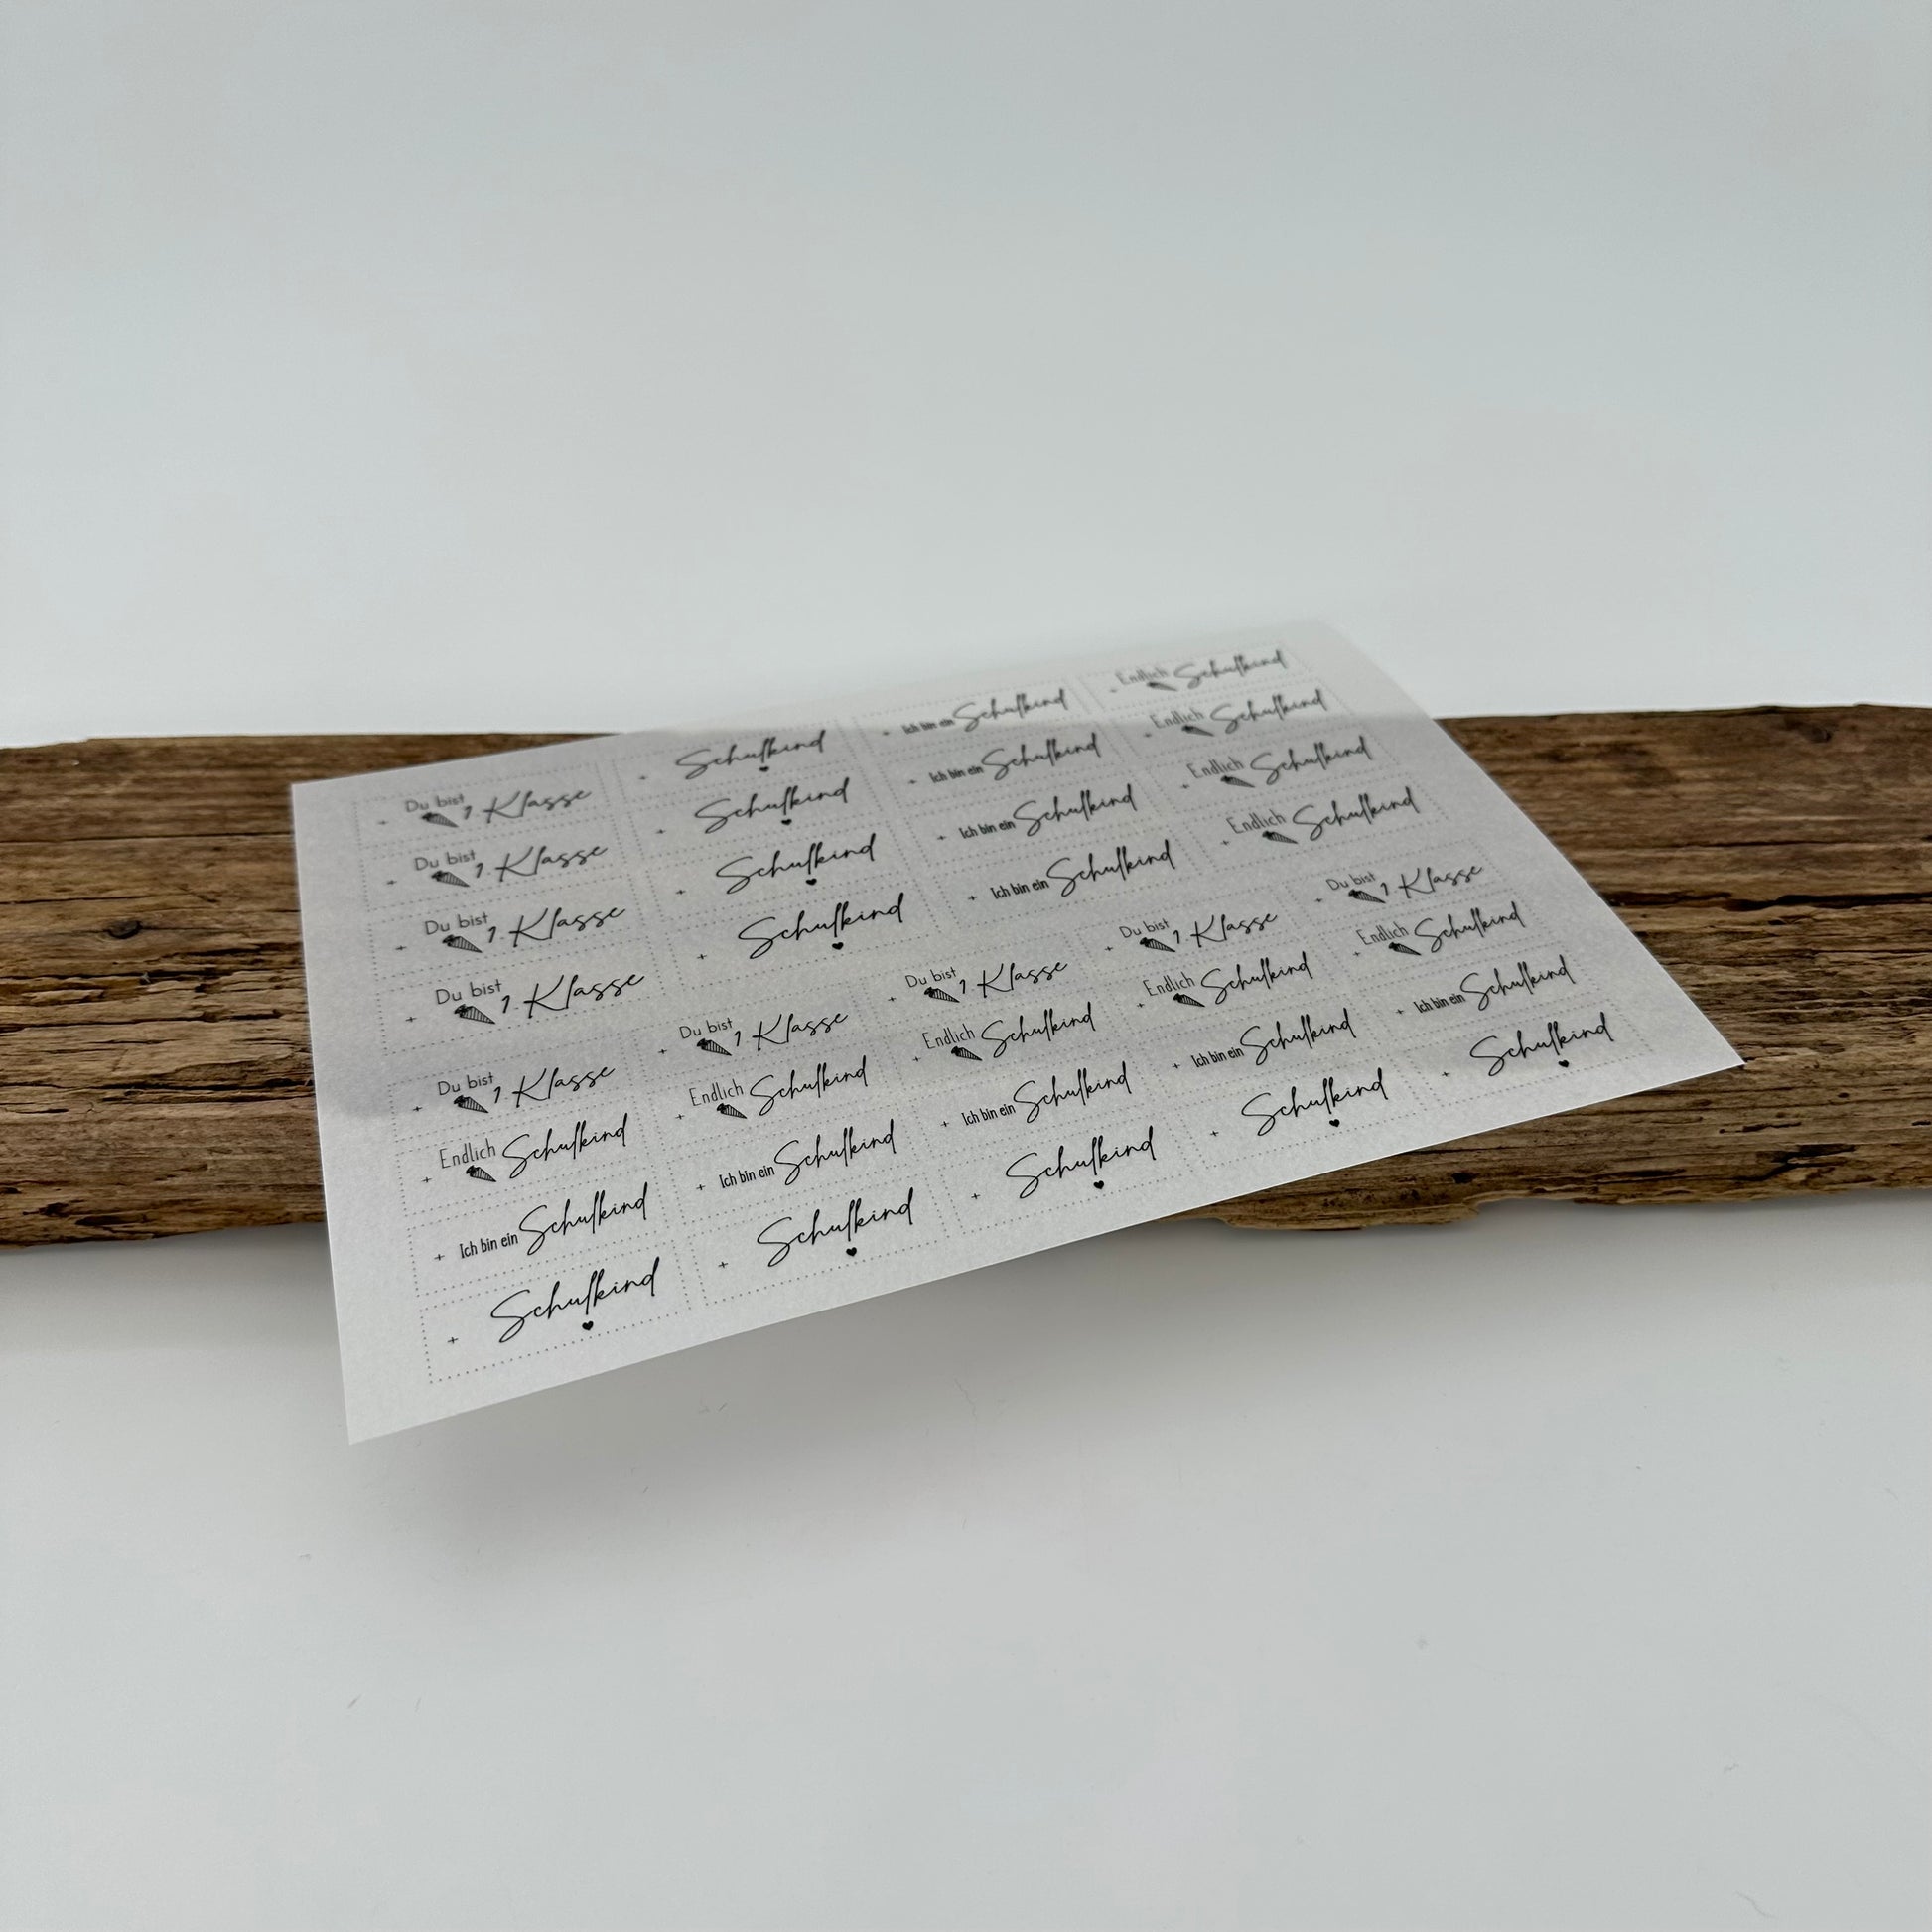 Du bist 1. Klasse
Schulkind
Ich bin ein Schulkind
Endlich Schulkind
Du bist 1. Klasse
Schulkind
Ich bin ein Schulkind
Endlich Schulkind
Du bist 1. Klasse
Schulkind
Ich bin ein Schulkind
Endlich Schulkind
Du bist 1. Klasse
Schulkind
Ich bin ein Schulkind
Endlich Schulkind
Du bist 1. Klasse
Du bist 1. Klasse
Du bist 1. Klasse
Du bist 1. Klasse
Du bist 1. Klasse
Endlich Schulkind
Endlich Schulkind
Endlich Schulkind
Endlich Schulkind
Endlich Schulkind
Ich bin ein Schulkind
Ich bin ein Schulkind
Ich bin ein Schulkind
Ich bin ein Schulkind
Ich bin ein Schulkind
Schulkind
Schulkind
Schulkind
Schulkind
Schulkind